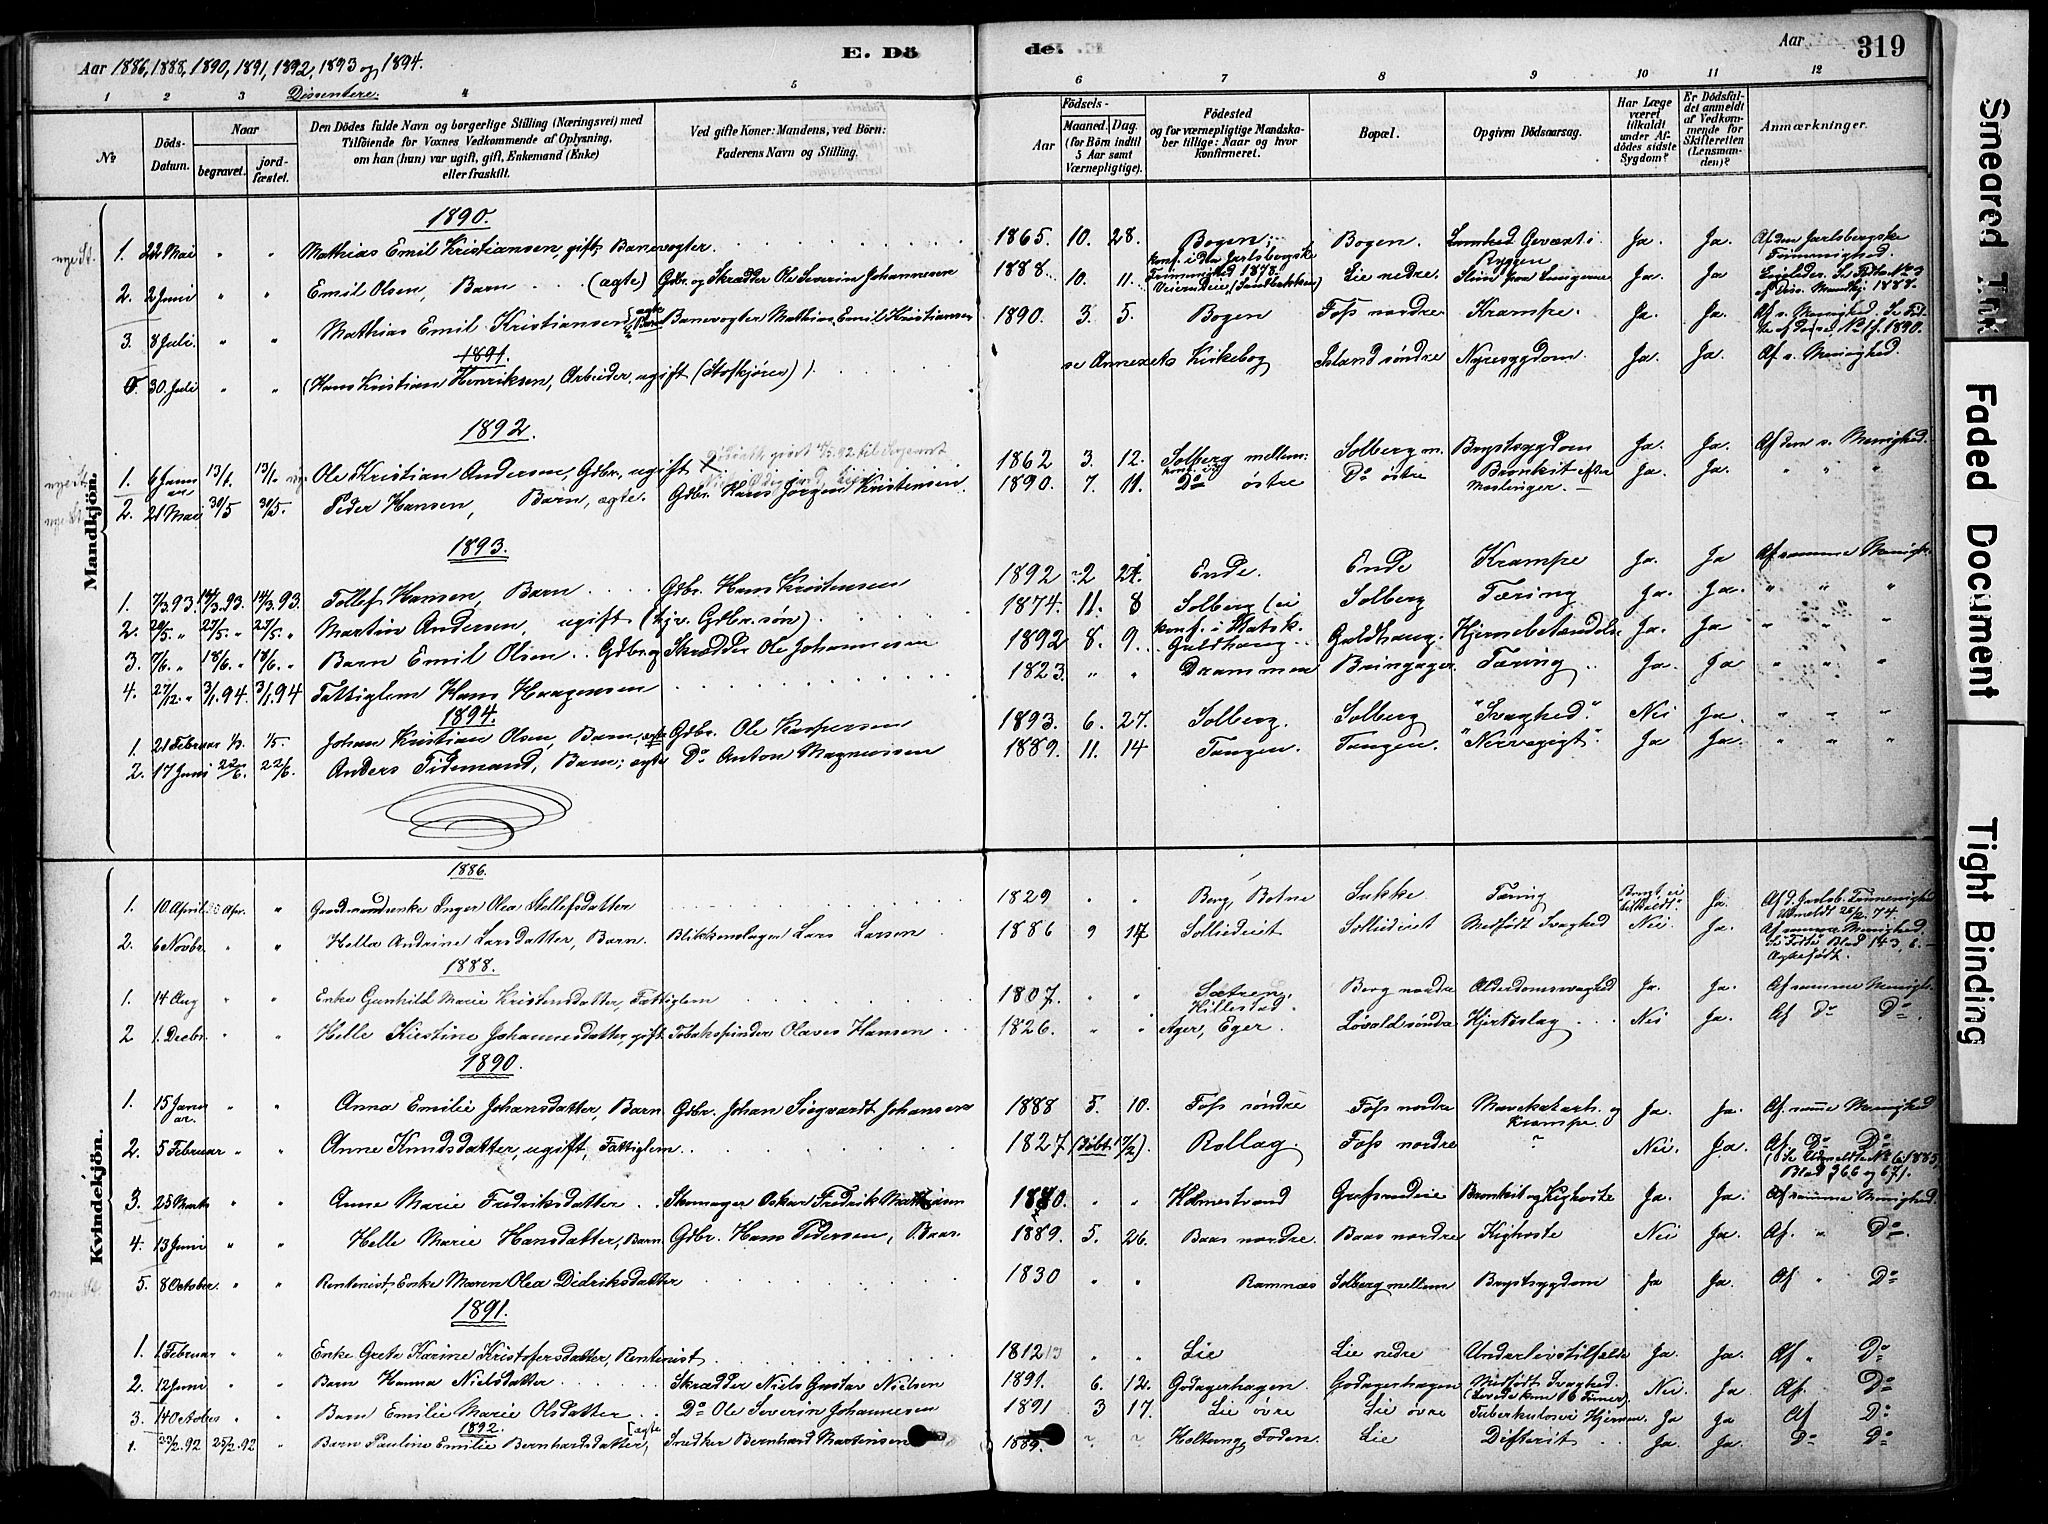 Aar 1886, 1888, 1890, 1891, 1892, 1893 og 1894.
Dissentere.
E. Döde.
Aar
319
1 2 3 4 5 6 7 8 9 10 11 12
№
Döds-Datum.
Naar
begravet.
jord-fæstet.
Den Dödes fulde Navn og borgerlige Stilling (Næringsvei) med Tilföiende for Voxnes Vedkommende af Oplysning, om han (hun) var ugift, gift, Enkemand (Enke) eller fraskilt.
Ved gifte Koner: Mandens, ved Börn: Faderens Navn og Stilling.
Födsels-
Aar
Maaned.
Dag.
(for Börn indtil 5 Aar samt Værnepligtige).
Födested og for værnepligtige Mandskaber tillige: Naar og hvor konfirmeret.
Bopæl.
Opgiven Dödsaarsag.
Har Læge været tilkaldt under Afdödes sidste Sygdom?
Er Dödsfaldet anmeldt af Vedkommende for Skifteretten (Lensmanden)?
Anmærkninger.
Mandkjön.
1890.
1. 22 Mai " " Mathias Emil Kristiansen, gift, Banevogter. 1865. 10. 28. Bogen; konf. i den Jarlsbergske Frimenighed 1878. Bogen. Gevæxt i Ryggen Ja. Ja. Af den Jarlsbergske Frimenighed.
2. 2 Juni " " Emil Olsen, Barn (ægte) Gdbr. og Skrædder Ole Severin Johannesen 1888. 10. 11. Lie nedre. Slim paa Lungerne Ja. Ja
3. 8 Juli. " " Mathias Emil Kristiansen, ægte Barn Banevogter Mathias Emil Kristiansen 1890. 3. 5. Bogen Foss nordre Krampe. Ja. Ja. Af s. Menighed.
1891.
0. 30. Juli " " (Hans Kristian Henriksen, Arbeider, ugift se Annexets Kirkebog søndre Nyresygdom. Ja. Ja. Af s. Menighed.
1892.
1. 6 Januar 13/1 13/1 Ole Kristian Andersen, Gdbr., ugift 1862 3. 12. Solberg mellem Solberg m. Brystsygdom Ja. Ja. Af den s. Menighed.
2. 21 Mai 30/5 30/5. Peder Hansen, Barn, ægte. Gdbr. Hans Jörgen Kristensen 1890. 7. 11. Do østre Do østre Bronkit efter Meslinger. Ja. Ja. " " "
1893.
1. 7/3 93. 14/3. 93. 14/3. 93 Tollef Hansen, Barn Gdbr. Hans Kristensen 1892 2 Ende. Ende Krampe Ja. Ja Af samme Menigh.
2. 20/5. " 27/5. " 27/5. " Martin Andersen, ugift Gdbr.søn) 1874. 11. 8 Solberg (ei konf. i Statsk. Solberg Tæring Ja. Ja. " " "
3. 7/6. " 18/6. " 18/6. " Barn Emil Olsen Gdbr. og Skrædder Ole Johannesen 1892 8. 9. Guldhaug Guldhaug. Hjernebetændelse Ja. Ja " " "
4. 27/12. " 3/1. 94. 3/1. 94 Fattiglem Hans Haagensen 1823. " " Drammen Bringager Tæring Ja Ja " " "
1894.
1. 21 Februar 1/3. Johan Kristian Olsen, Barn, ægte Gdbr. Ole Kaspersen 1893. 6. 27. Solberg. Solberg "Svaghed". Nei Ja. " " "
2. 17 Juni 22/6. 22/6. Anders Tidemand, Barn; ægte Do Anton Magnusen 1889. 11. 14 Tangen. Tangen. "Nervegigt". Ja Ja. " " "
Kvindekjön.
1886.
1. 10 April. Apr. " Gaardmandsenke Inger Olea Stellefsdatter 1829 " " Berg, Botne Sukke Tæring Ja. Af d. Jarlsb. Frimenighed Udmeldt 25/2. 74.
2. 6 Novbr. " " Helle Andrine Larsdatter, Barn. Blikkenslager Lars Larsen 1886 9 17 Solliedeiet Solliedeiet Medfødt Svaghed Nei Ja. Af samme Menighed Blad 143, 6. Ægtefødt.
1888.
1. 14 Aug " " Enke Gunhild Marie Kristensdatter, Fattiglem 1807. " " Sætren, Hillestad. Berg nordre Alderdomssvaghed Ja. Ja. Af samme Menigh.
2 1. Decbr. " " Helle Kristine Johannesdatter, gift Tobakspinder Olaves Hansen 1826. " " Ager, Eger. Løvald søndre Hjerteslag Nei Ja. Af Do Do.
1890.
1. 15 Januar. " " Anna Emilie Johansdatter, Barn Gdbr. Johan Siegvardt Johansen 1888 5. 10. Foss søndre Foss nordre Mavekatarh. og Krampe. Ja. Ja. Af samme Menighed
2. 5 Februar " " Anne Knudsdatter, ugift, Fattiglem 1827. Rollag. Foss nordre " Nei. Ja. Af Do Do
3. 25 Marts " " Anne Marie Fredriksdatter Skomager Oskar Fredrik Mathisen " " Holmestrand Bronkit og Kighoste Ja. Ja. Af samme Menighed.
4. 13 Juni " " Helle Marie Hansdatter, Barn. Gdbr. Hans Pedersen, Baas. 1889. 5. 26. Baas nordre. Baas nordre Kighoste Nei Ja. Af. " Do.
5. 8 October. " " Rentenist, Enke Maren Olea Didriksdatter 1830 " " Ramnæs Solberg mellem Brystsygdom Ja Ja. Af " Do
1891.
1. 1 Februar " " Enke Grete Karine Kristofersdatter, Rentenist. 1812 13 " " Lie Lie nedre Underlivstilfælde Ja. Ja. Af " Do
2. 12 Juni " " Barn Hanna Nielsdatter Skrædder Niels Gustav Nielsen 1891. 6. 12. Godagerhagen. Godagerhagen Medfødt Svaghed (Levede kun 16 Timer). Nei. Ja Af. " Do
3. 14 October " " Barn Emilie Marie Olsdatter Do Ole Severin Johannesen 1891 3 17. Lie øvre Lie øvre Tuberkulose i Hjernen Ja Ja Af Do
1892.
1. 23/2. 92 25/2. 92 " Barn Pauline Emilie Bernhardsdatter, ægte Snedker Bernhard Martinsen 1889. " " Lie Difterit Ja. Ja. Do Do
Smeared Ink
Faded Document
Tight Binding